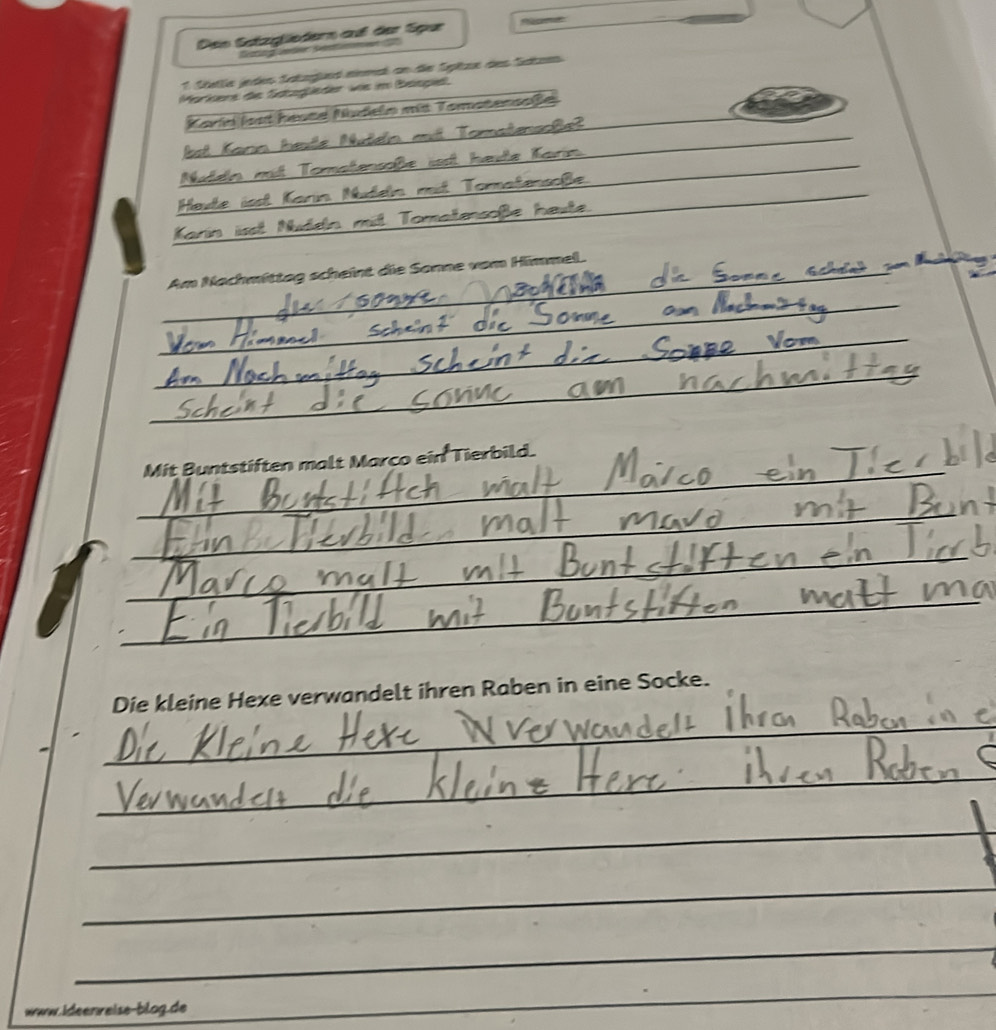 Den Satzgliedern auf der Spur
Satzglieder bestimmen
Name:
1. Stelle jedes Satzglied einmal an die Spitze des Satzes.
Markiere die Satzglieder wie im Beispiel.
Karin isst heute Nudeln mit Tomatensoße.
Isst Karin heute Nudeln mit Tomatensoße?
Nudeln mit Tomatensoße isst heute Karin.
Heute isst Karin Nudeln mit Tomatensoße.
Karin isst Nudeln mit Tomatensoße heute.
Am Nachmittag scheint die Sonne vom Himmel.
die sonne die Sonne scheint
Vom Himmel scheint die Sonne am Nachmittag
Am Nachmittag scheint die Sonne Vom
Scheint die sonne am nachmittag
Mit Buntstiften malt Marco ein Tierbild.
Mit Buntstiftch malt Marco ein Tierbild
Ein Tierbild malt mavo mit Bunt
Marco malt mit Buntstiften ein Tierb
Ein Tierbild mit Buntstiften malt ma
Die kleine Hexe verwandelt ihren Raben in eine Socke.
Die Kleine Hexe verwandelt ihren Raben in e
Verwandelt die kleine Hexe ihren Raben
www.ideenreise-blog.de